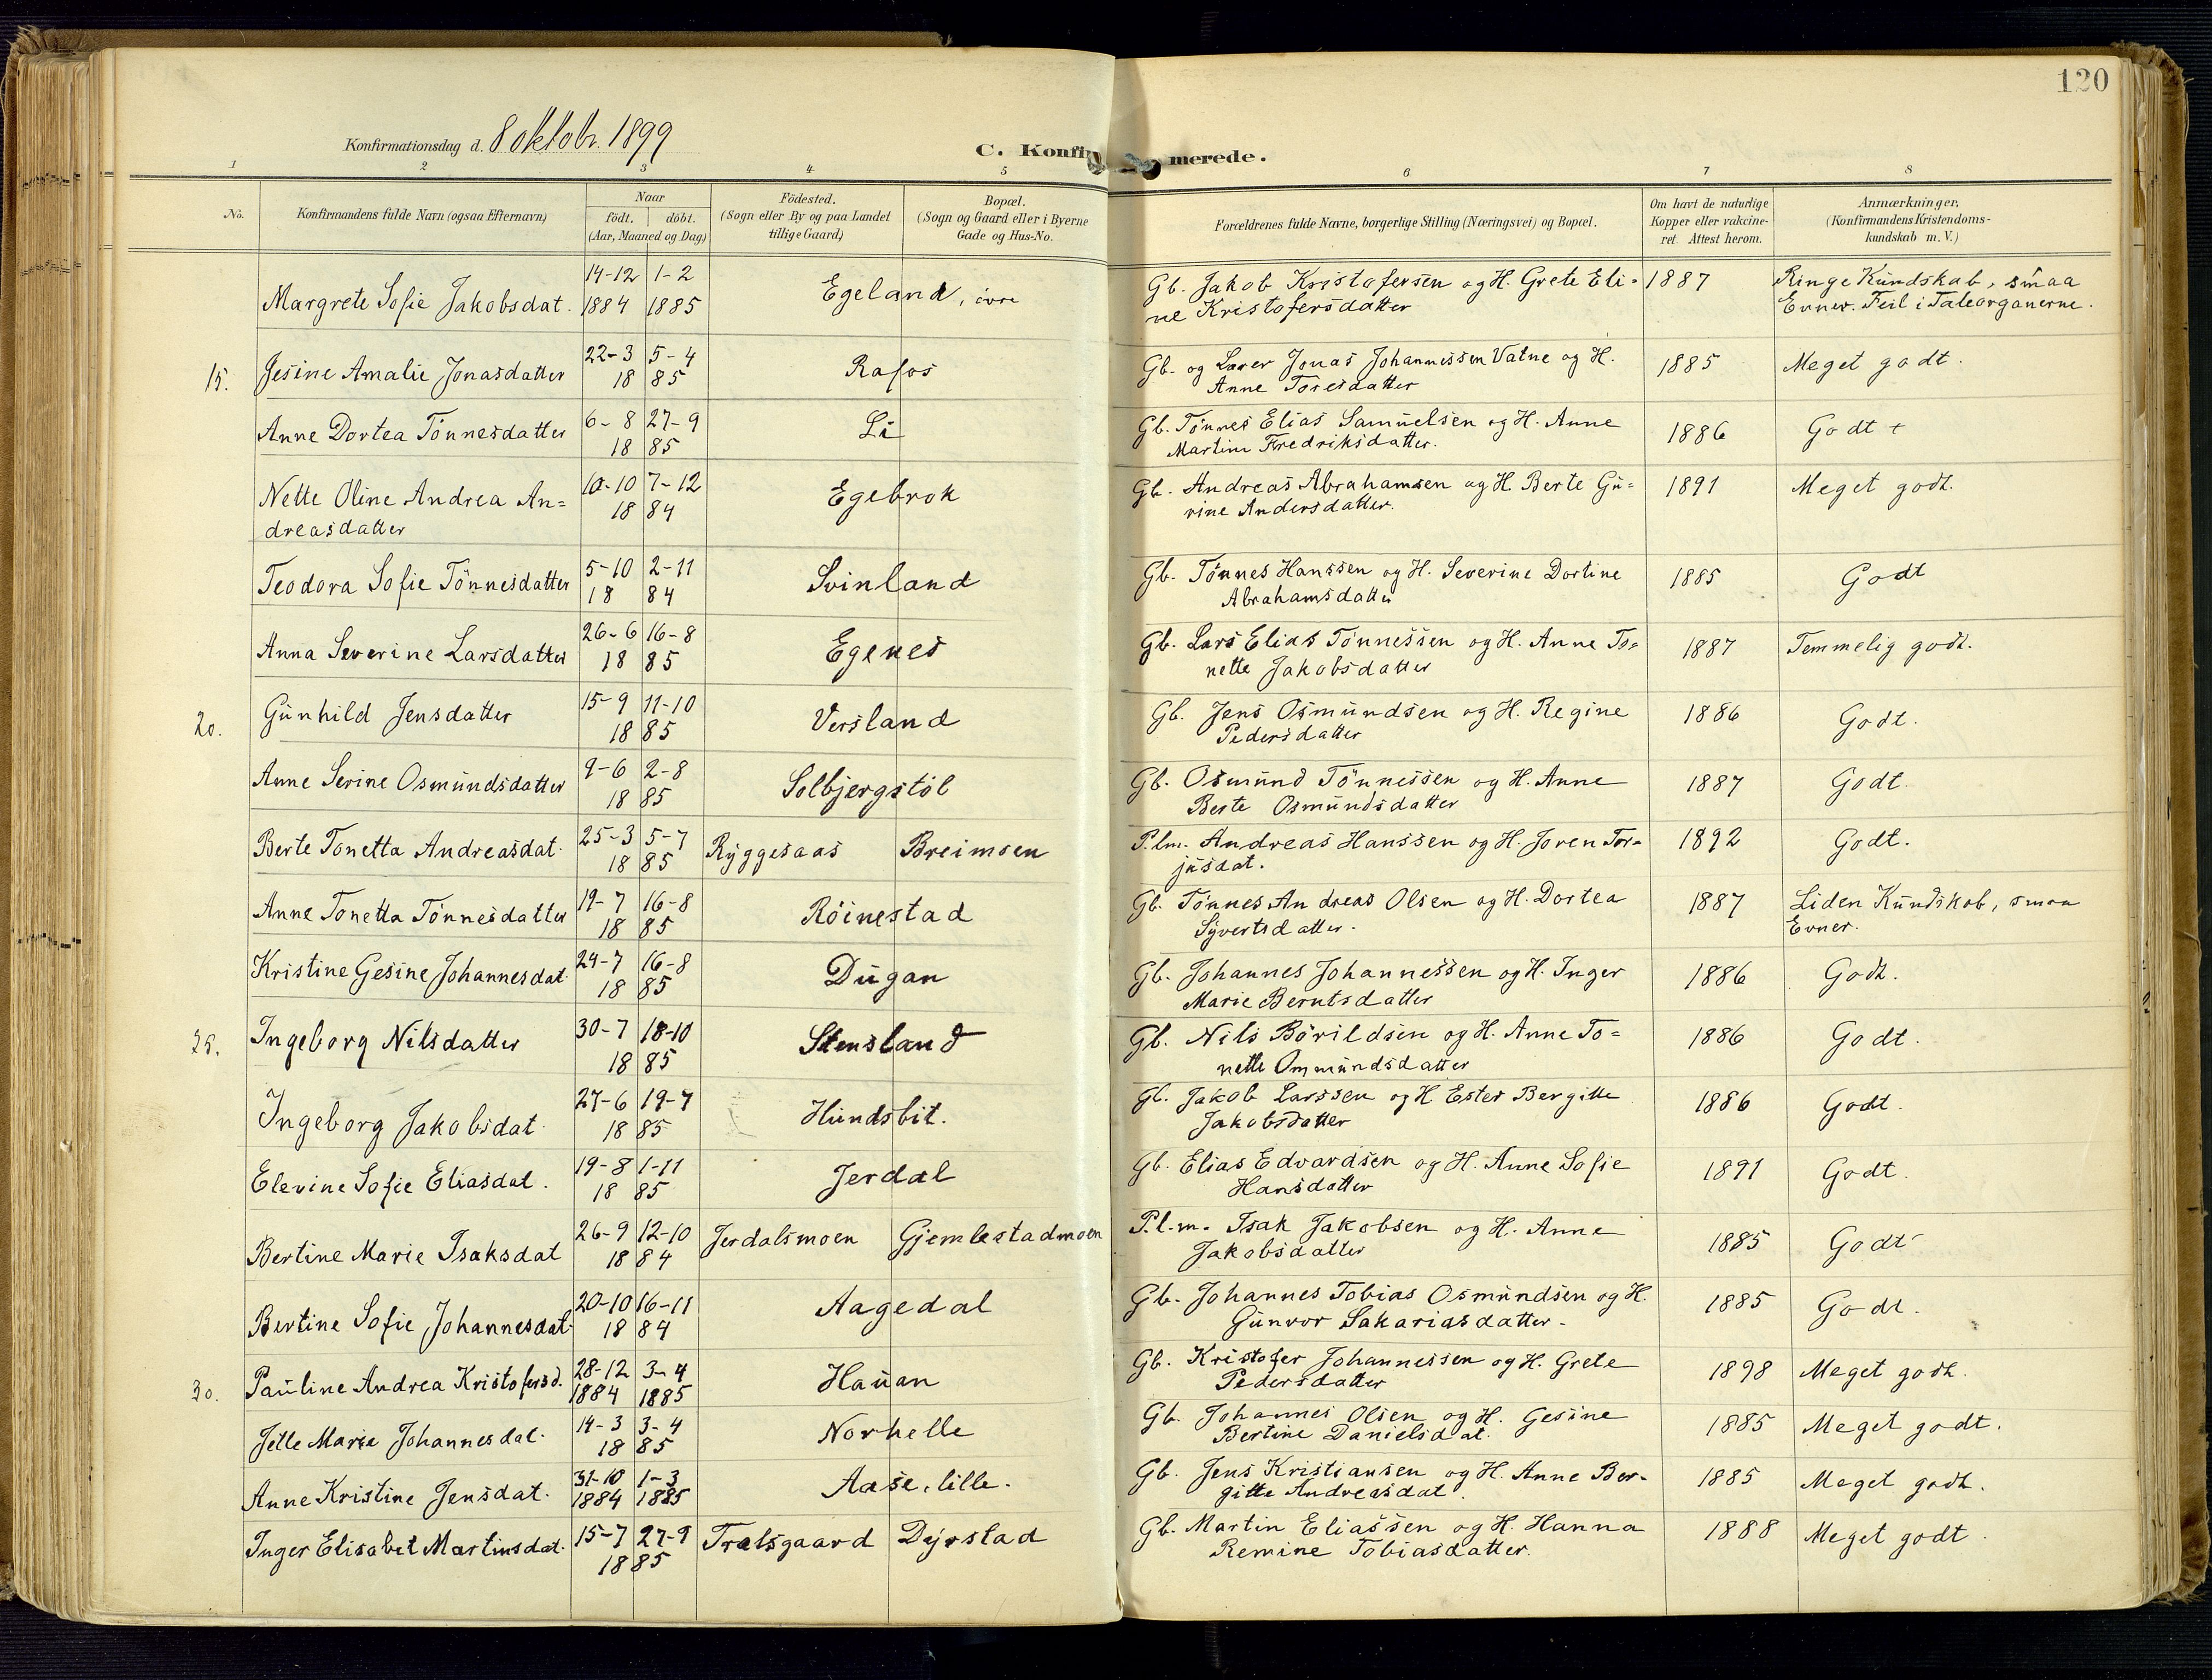 120
Konfirmationsdag d. 8 oktobr. 1899
C. Konfirmerede.
1 2 3 4 5 6 7 8
No.
Konfirmandens fulde Navn (ogsaa Efternavn)
Naar
födt. döbt.
(Aar, Maaned og Dag)
Födested.
(Sogn eller By og paa Landet
tillige Gaard)
Bopæl.
(Sogn og Gaard eller i Byerne
Gade og Hus-No.
Forældrenes fulde Navne, borgerlige Stilling (Næringsvei) og Bopæl.
Om havt de naturlige
Kopper eller vakcine-
ret. Attest herom.
Anmærkninger.
(Konfirmandens Kristendoms-
kundskab m. V.)
14-12 1-2 Egeland, övre Gb. Jakob Kristofersen og H. Grete Eli= 1887 Ringe Kundskab, smaa
Margrete Sofie Jakobsdat. 1884 1885 ne Kristofersdatter Evner. Feil i Taleorganerne.
15. Jesine Amalie Jonasdatter 22-3 5-4 Rafos Gb. og Lærer Jonas Johannessen Vatne og H. 1885 Meget godt.
18 85 Anne Toresdatter
Anne Dortea Tönnesdatter 6-8 27-9 Li Gb. Tönnes Elias Samuelsen og H. Anne 1886 Godt +
18 85 Martine Fredriksdatter.
Nette Oline Andrea An= 10-10 7-12 Egebrok Gb. Andreas Abrahamsen og H. Berte Gu= 1891 Meget godt.
dreasdatter 18 84 rine Andersdatter.
Teodora Sofie Tönnesdatter 5-10 2-11 Svinland Gb. Tönnes Hanssen og H. Severine Dortine 1885 Godt
18 84 Abrahamsdatter
Anna Severine Larsdatter 26-6 16-8 Egenes Gb. Lars Elias Tönnessen og H. Anne To= 1887 Temmelig godt.
18 85 nette Jakobsdatter
20. Gunhild Jensdatter 15-9 11-10 Versland Gb. Jens Osmundsen og H. Regine 1886 Godt.
18 85 Pedersdatter
Anne Serine Osmundsdatter 9-6 2-8 Solbjergstöl Gb. Osmund Tönnessen og H. Anne 1887 Godt.
18 85 Berte Osmundsdatter
Berte Tonetta Andreasdat. 25-3 5-7 Ryggesaas Breimoen P.lm. Andreas Hanssen og H. Joren Tor= 1892 Godt.
18 85 jusdat.
Anne Tonetta Tönnesdatter 19-7 16-8 Röinestad Gb. Tönnes Andreas Olsen og H. Dortea 1887 Liden Kundskab, smaa
18 85 Syvertsdatter. Evner.
Kristine Gesine Johannesdat. 24-7 16-8 Dugan Gb. Johannes Johannessen og H. Inger 1886 Godt.
18 85 Marie Berntsdatter
25. Ingeborg Nilsdatter 30-7 18-10 Stensland Gb. Nils Börildsen og H. Anne To= 1886 Godt.
18 85 nette Ommundsdatter
Ingeborg Jakobsdat. 27-6 19-7 Hundsbit. Gb. Jakob Larssen og H. Ester Bergitte 1886 Godt.
18 85 Jakobsdatter
Elevine Sofie Eliasdat. 19-8 1-11 Jerdal Gb. Elias Edvardsen og H. Anne Sofie 1891 Godt.
18 85 Hansdatter
Bertine Marie Isaksdat 26-9 12-10 Jerdalsmoen Gjemlestadmoen P.l.m. Isak Jakobsen og H. Anne 1885 Godt
18 84 Jakobsdatter
Bertine Sofie Johannesdat. 20-10 16-11 Aagedal Gb. Johannes Tobias Osmundsen og H. 1885 Godt.
18 84 Gunvor Sakariasdatter.
30. Pauline Andrea Kristofersd. 28-12 3-4 Hauan Gb. Kristofer Johannessen og H. Grete 1898 Meget godt.
1884 1885 Pedersdatter
Jelle Marie Johannesdat. 14-3 3-4 Norhelle Gb. Johannes Olsen og H. Gesine 1885 Meget godt.
18 85 Bertine Danielsdat.
Anne Kristine Jensdat. 31-10 1-3 Aase, lille. Gb. Jens Kristiansen og H. Anne Ber- 1885 Meget godt.
1884 1885 gitte Andreasdat.
Inger Elisabet Martinsdat. 15-7 27-9 Trælsgaard Dyrstad Gb. Martin Eliassen og H. Hanna 1888 Meget godt.
18 85 Remine Tobiasdatter.